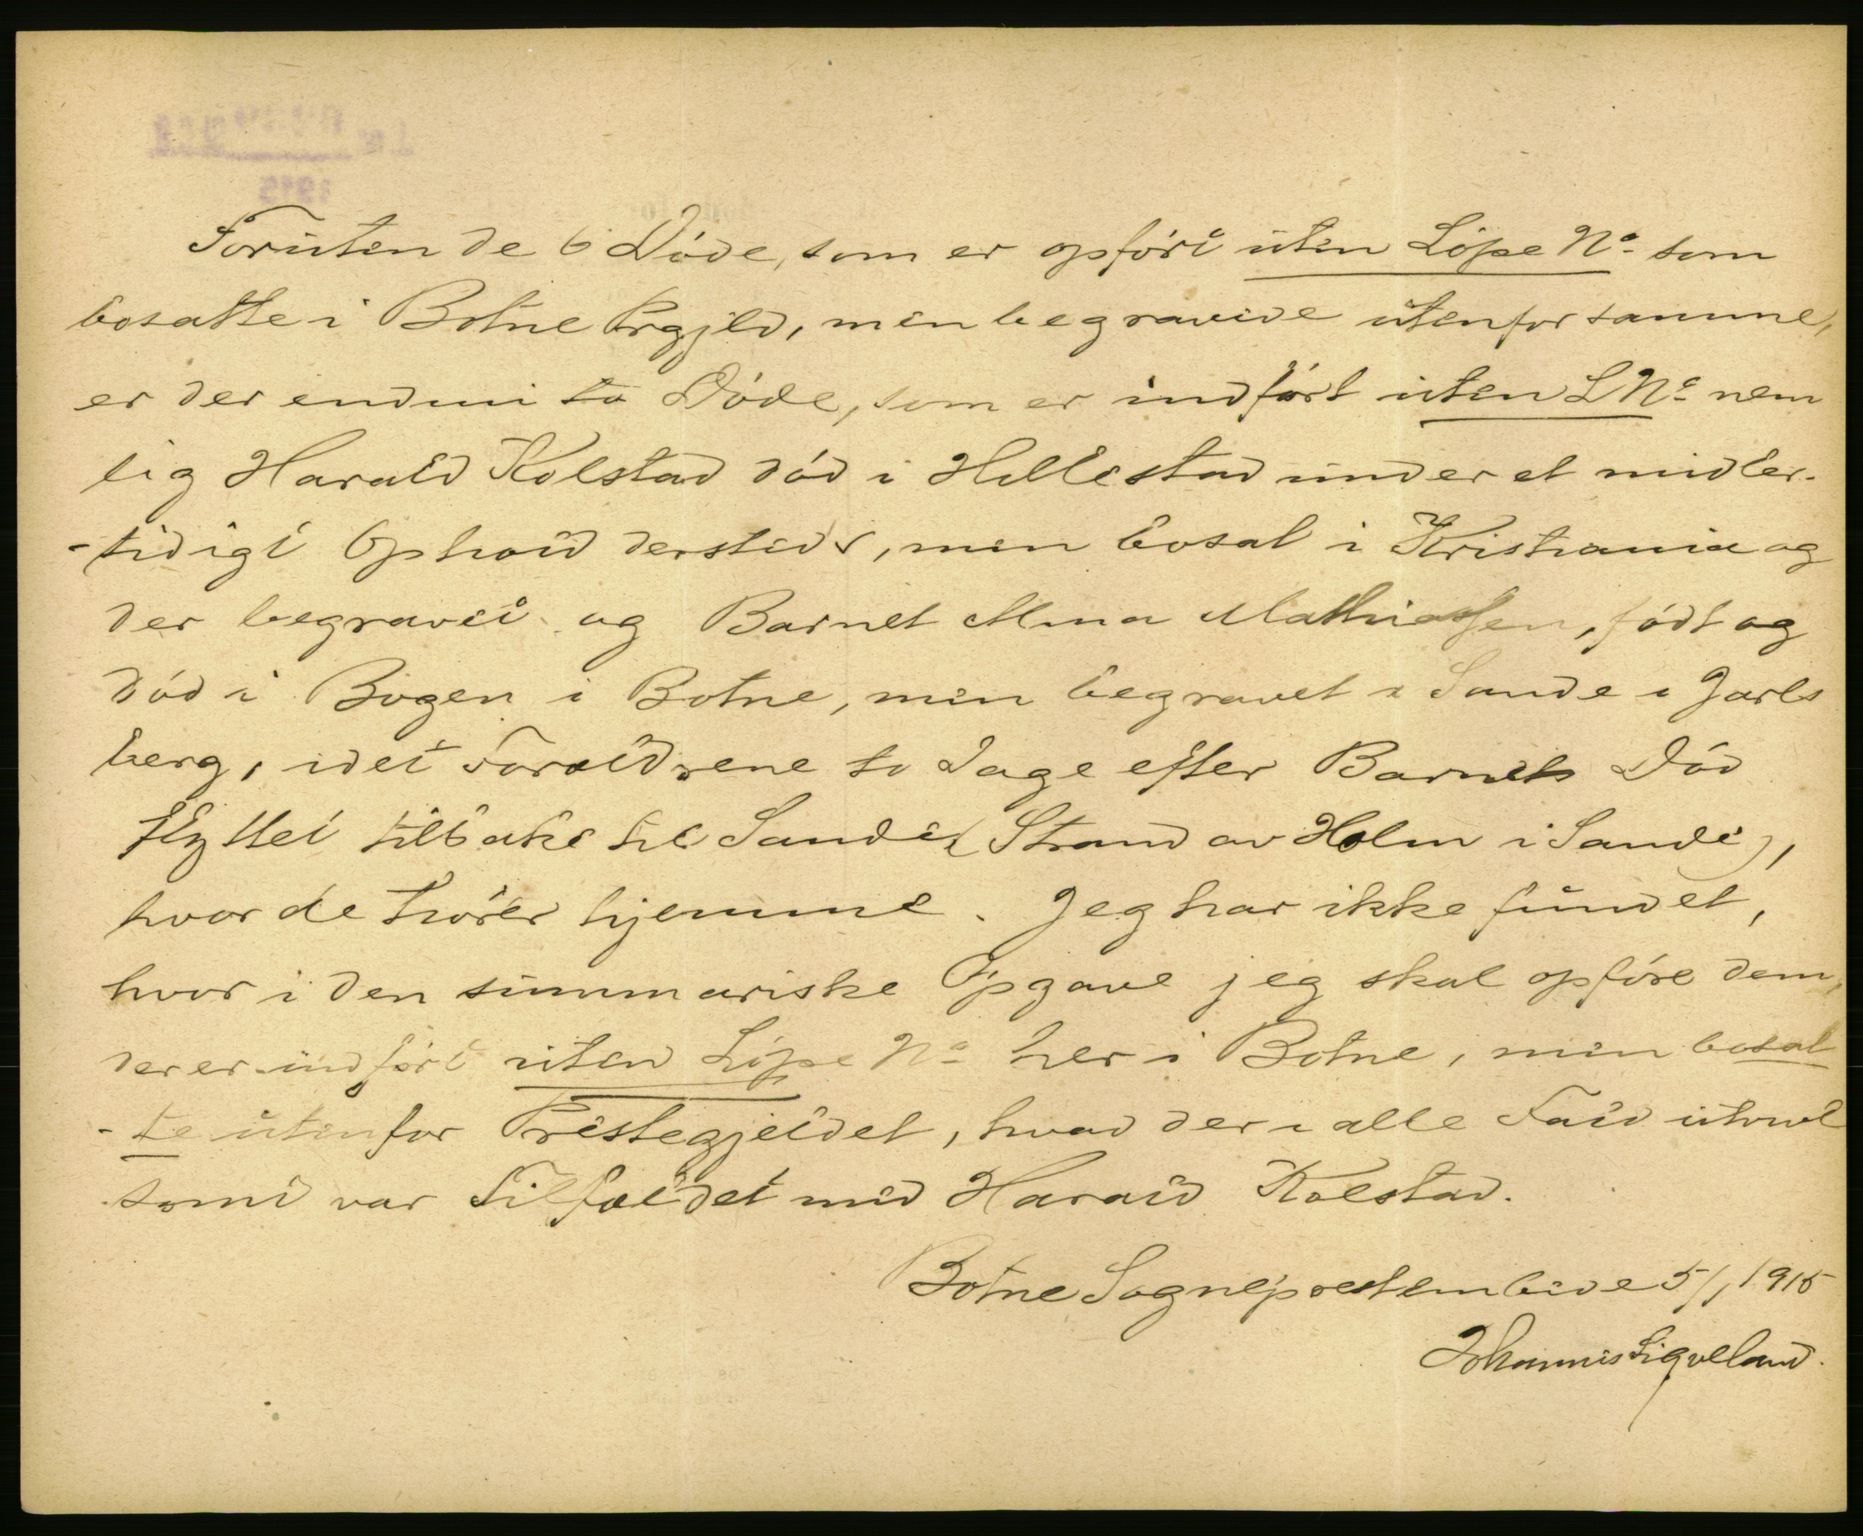 Foruten de 6 Døde, som er opført uten Løpe No. som
bosatte i Botne Prgjld, men begravede utenfor samme,
er der endnu to Døde, som er indført uten LNo nem
lig Harald Kolstad død i Hillestad under et midler-
-tidigt Ophold dersteds, men bosat i Kristiania og
der begravet og Barnet Alma Mathiassen, født og
død i Bogen i Botne, men begravet i Sande i Jarls
berg, idet Forældrene to Dage efter Barnets Død
flyttet tilbake til Sande (Strand av Holm i Sande),
hvor de hører hjemme. Jeg har ikke fundet,
hvor i den summariske Opgave jeg skal opføre dem,
der er indført uten Løpe No her i Botne, men bosat
-te utenfor Prestegjeldet, hvad der i alle Fald utvivl
somt var Tilfældet med Harald Kolstad.
Botne Sogneprestembede 5/1 1915
Johannes Sigveland.
1915